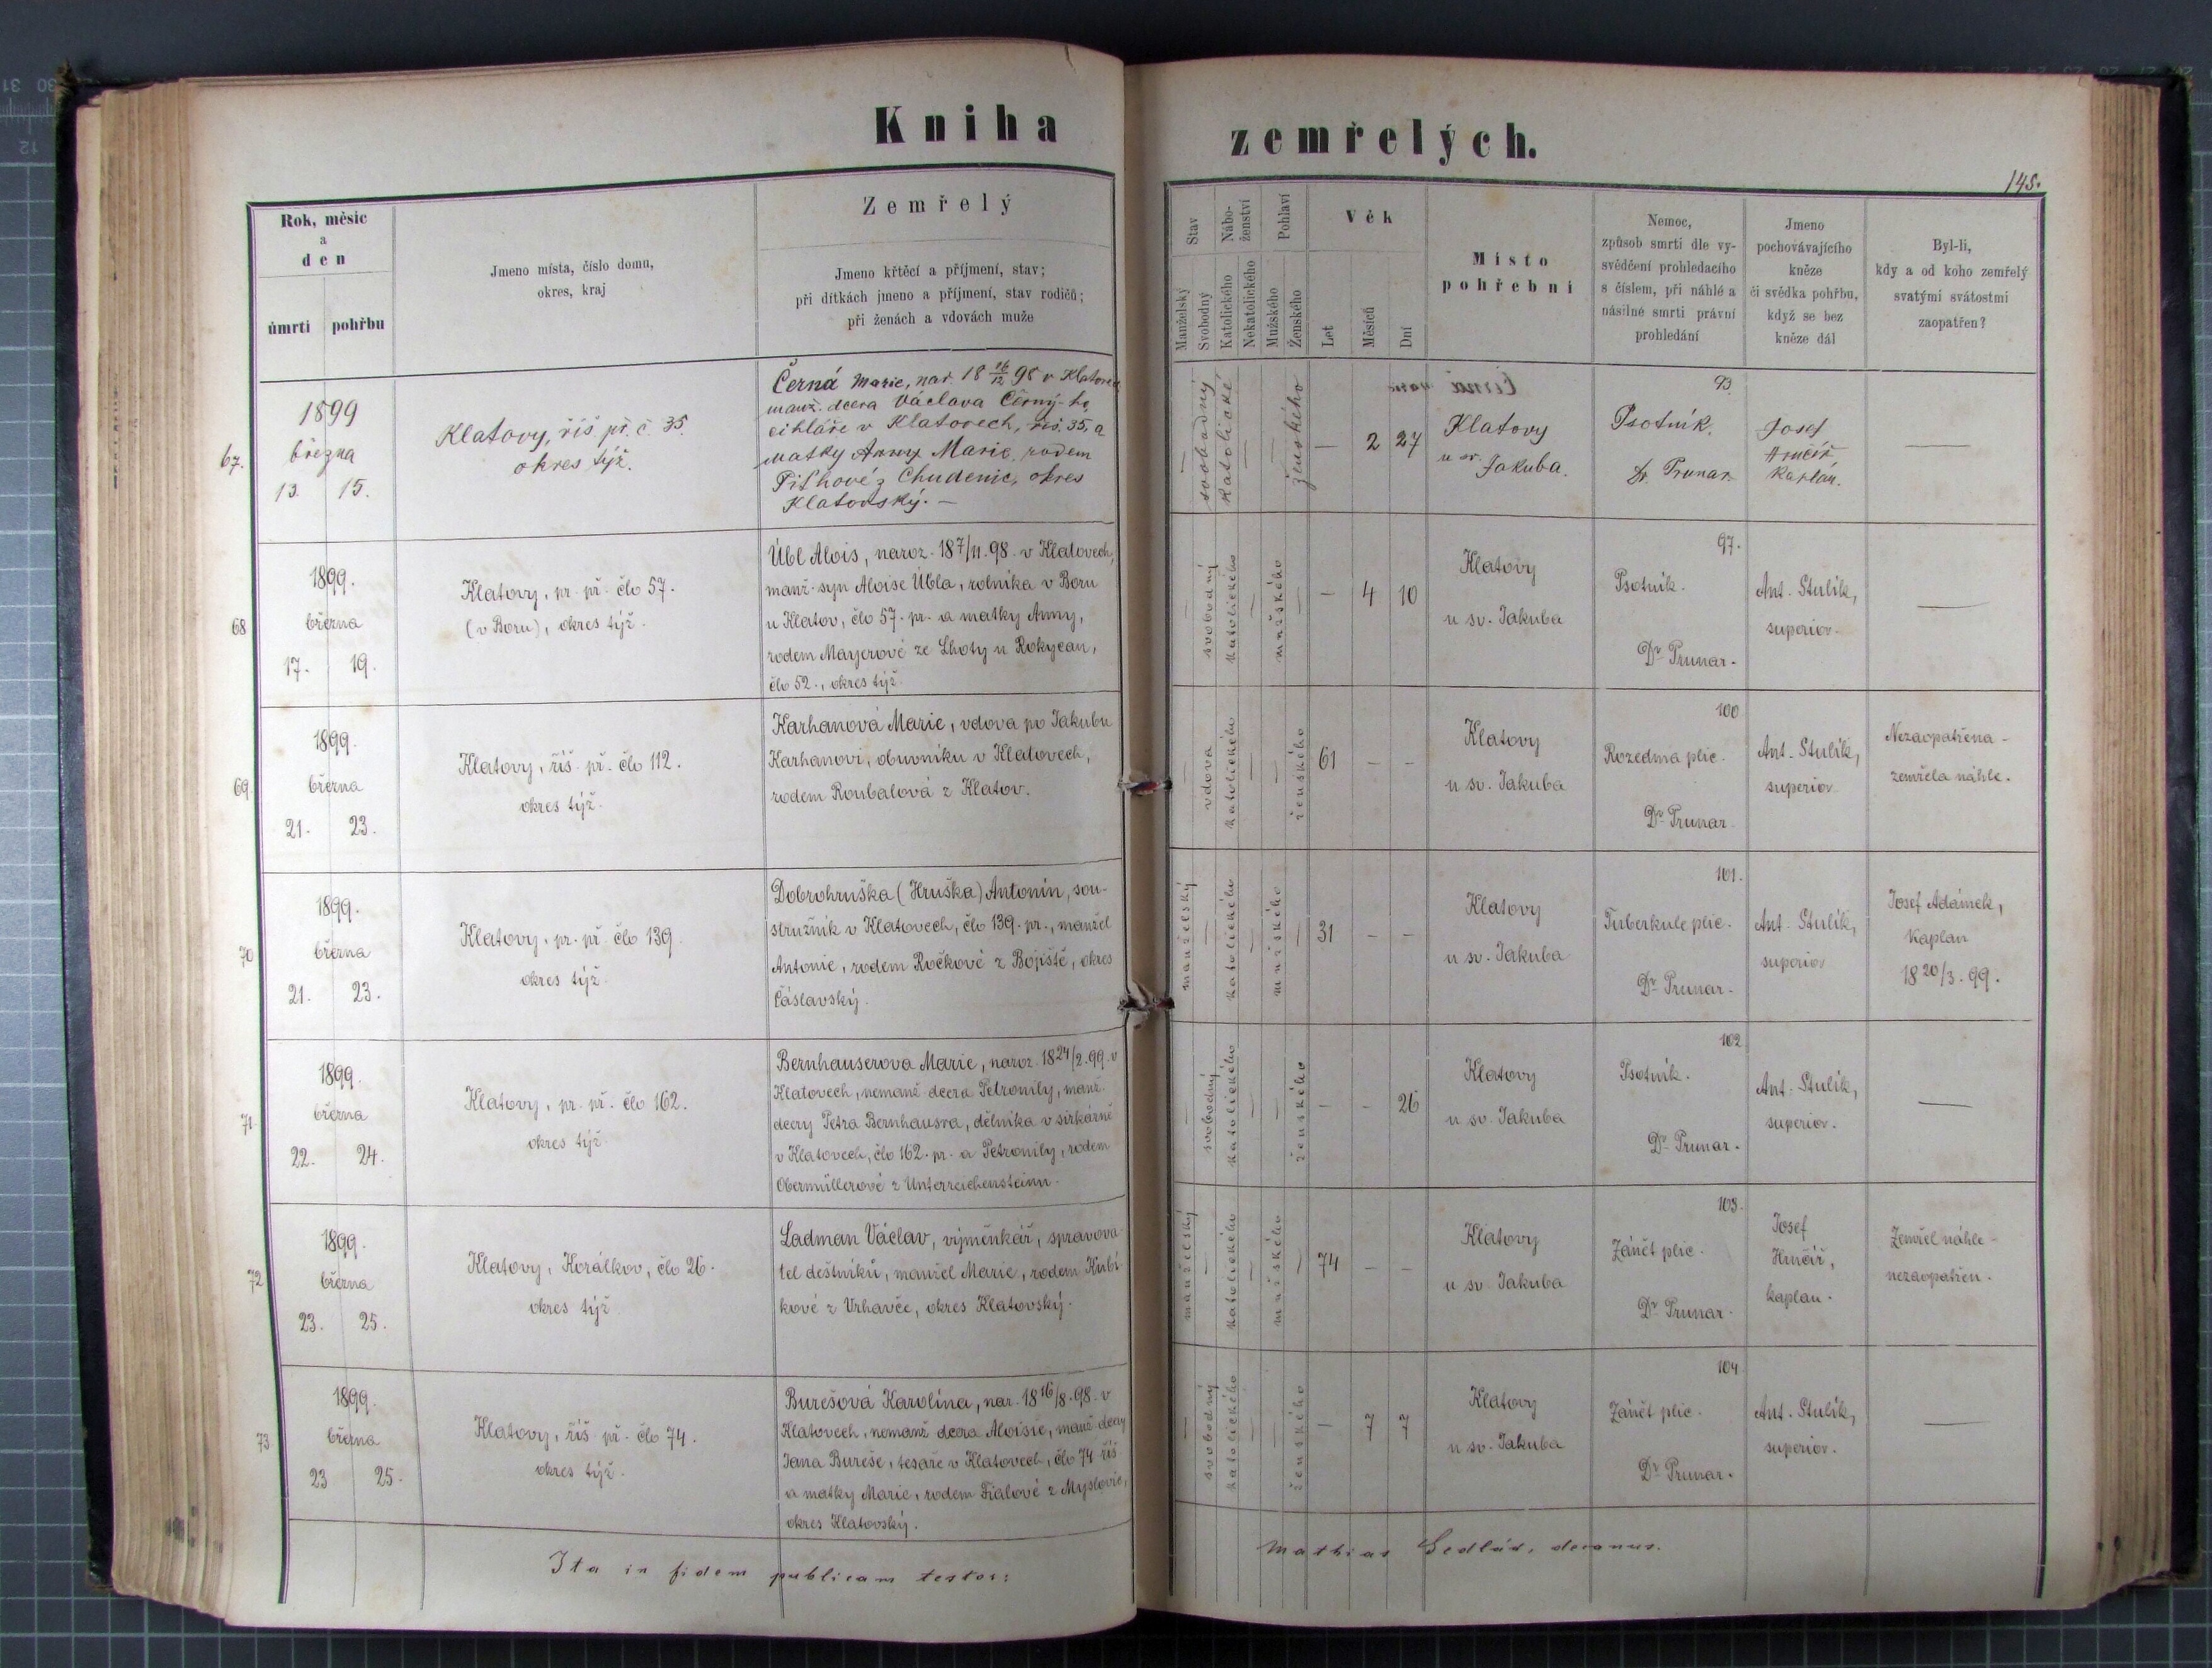 Kniha zemřelých.
145.
Rok, měsíc
a
den
úmrtí pohřbu
Jmeno místa, číslo domu,
okres, kraj
Zemřelý
Jmeno křtěcí a příjmení, stav;
při dítkách jmeno a příjmení, stav rodičů;
při ženách a vdovách muže
Stav
Manželský
Svobodný
Nábo-
ženství
Katolického
Nekatolického
Pohlaví
Mužského
Ženského
Věk
Let
Měsíců
Dní
Místo
pohřební
Nemoc,
způsob smrti dle vy-
svědčení prohledacího
s číslem, při náhlé a
násilné smrti právní
prohledání
Jmeno
pochovávajícího
kněze
či svědka pohřbu,
když se bez
kněze dál
Byl-li,
kdy a od koho zemřelý
svatými svátostmi
zaopatřen?
67.
1899
března
13. 15.
Klatovy, říš. př. č. 35.
okres týž.
Černá Marie, nar. 18 16/12 98 v Klatovech
manž. dcera Václava Černý-ho,
cihláře v Klatovech, říš. 35, a
matky Anny Marie, rodem
z Chudenic, okres
Klatovský. —
— svobodný katolické — — ženského
— 2 27
Klatovy
u sv. Jakuba.
93.
Psotník.
Dr. Prunar.
Josef
Hručíř
Kaplan.
—
68
1899.
března
17. 19.
Klatovy, pr. př. člo 57.
(v Boru), okres týž.
Übl Alois, naroz. 18 7/11. 98. v Klatovech,
manž. syn Aloise Übla, rolníka v Boru
u Klatov, člo 57. pr. a matky Anny,
rodem Mayerové ze Lhoty u Rokycan,
člo 52., okres týž.
— svobodný katolického — mužského —
— 4 10
Klatovy
u sv. Jakuba
97.
Psotník.
Dr Prunar.
Ant. Stulík,
superior.
—
69.
1899.
března
21. 23.
Klatovy, říš. př. člo 112.
okres týž.
Karhanová Marie, vdova po Jakubu
Karhanovi, obuvníku v Klatovech,
rodem Roubalová z Klatov.
— vdova katolického — — ženského
61 — —
Klatovy
u sv. Jakuba
100
Rozedma plic.
Dr Prunar.
Ant. Stulík,
superior
Nezaopatřena -
zemřela náhle.
70
1899.
března
21. 23.
Klatovy, pr. př. člo 139.
okres týž.
Dobrohruška (Hruška) Antonín, sou-
stružník v Klatovech, člo 139. pr., manžel
Antonie, rodem Ročkové z Bojiště, okres
Čáslavský.
manželský — katolického — mužského —
31 — —
Klatovy
u sv. Jakuba
101.
Tuberkule plic.
Dr Prunar.
Ant. Stulík,
superior
Josef Adámek,
Kaplan
18 20/3. 99.
71.
1899.
března
22. 24.
Klatovy, pr. př. člo 162.
okres týž
Bernhauserova Marie, naroz. 18 24/2. 99. v
Klatovech, nemanž dcera Petronily, manž.
dcery Petra Bernhausra, dělníka v sirkárně
v Klatovech, člo 162. pr. a Petronily, rodem
Obermüllerové z Unterreichensteinu.
— svobodný katolického — — ženského
— — 26
Klatovy
u sv. Jakuba
102
Psotník.
Dr Prunar.
Ant. Stulík,
superior.
—
72
1899.
března
23. 25.
Klatovy, Korálkov, člo 26.
okres týž
Ladman Václav, výměnkář, spravova-
tel deštníků, manžel Marie, rodem Kubí-
kové z Vrhavče, okres Klatovský.
manželský — katolického — mužského —
74 — —
Klatovy
u sv. Jakuba
103.
Zánět plic.
Dr Prunar.
Josef
Hručíř,
kaplan.
Zemřel náhle -
nezaopatřen.
73.
1899.
března
23 25.
Klatovy, říš. př. člo 74.
okres týž.
Burešová Karolína, nar. 18 16/8. 98. v
Klatovech, nemanž dcera Aloisie, manž dcery
Jana Bureše, tesaře v Klatovech, člo 74 říš
a matky Marie, rodem Fialové z Myslovic,
okres Klatovský.
— svobodný katolického — — ženského
— 7 7
Klatovy
u sv. Jakuba
104.
Zánět plic.
Dr Prunar.
Ant. Stulík,
superior.
—
Ita in fidem publicam testor: Mathias Sedlák, decanus.